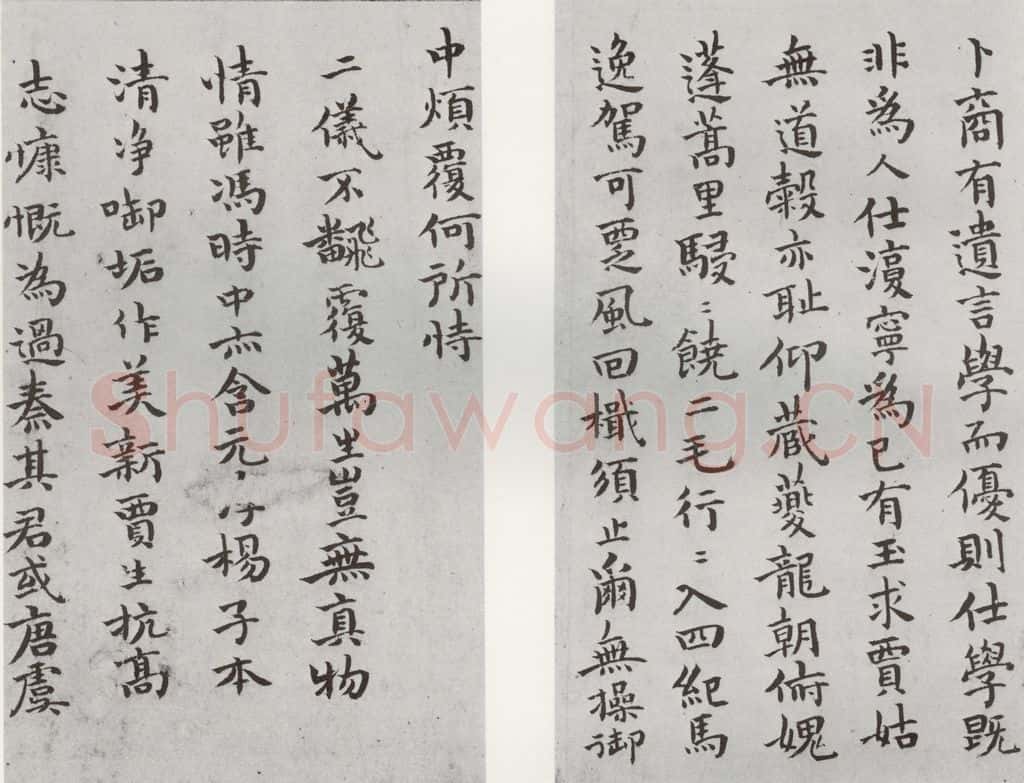 卜商有遺言學而優則仕學既
非為人仕寧為己有玉求賈姑
無道穀亦恥仰蔵夔龍朝俯媿
蓬蒿里駸〻饒二毛行〻入四紀馬
逸駕可乏風回檝須止爾無操御
中煩覆何所恃
二儀不飜覆萬生豈無真物
情雖馮時中亦含元楊子本
清净啣垢作美新賈生抗高
志慷慨為過秦其君或唐虞
Shufawang.CN